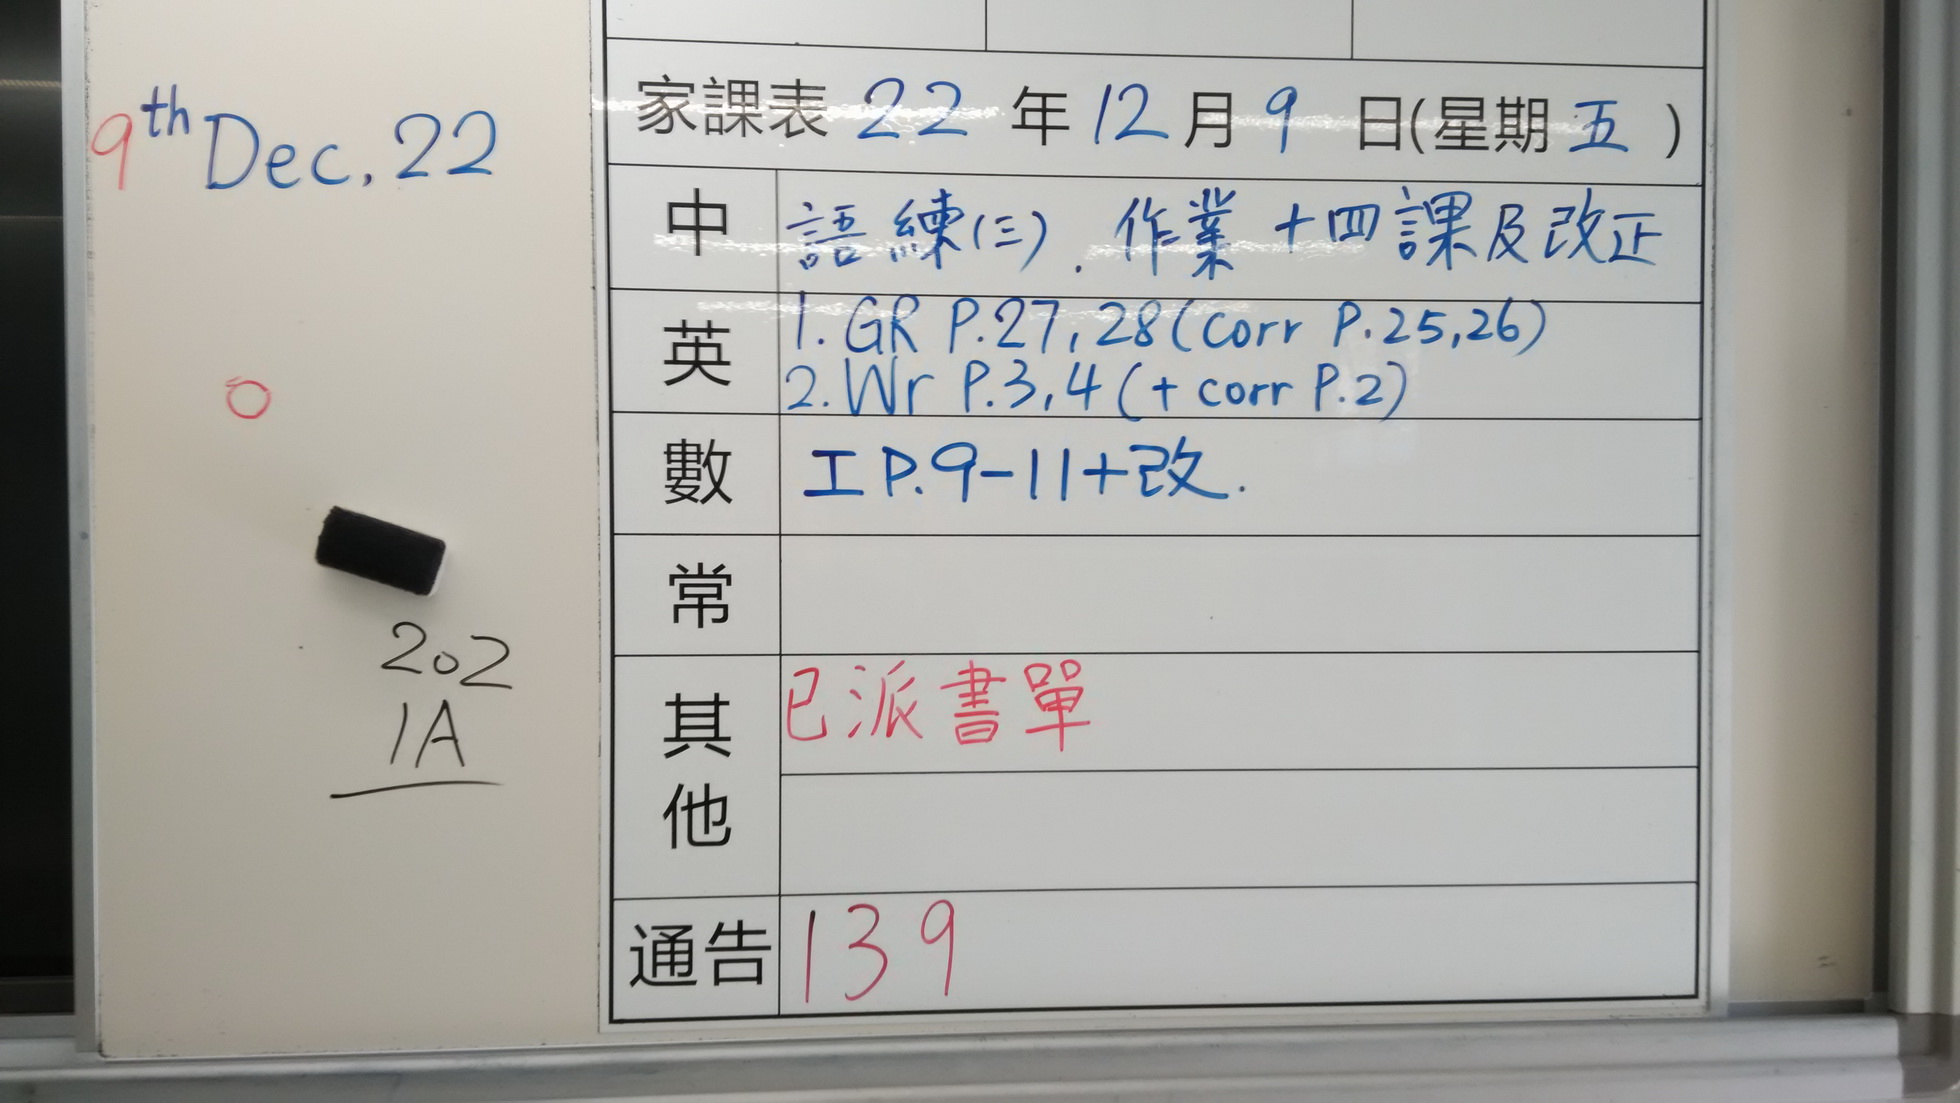 9th Dec. 22
202
1A
家課表 22 年 12 月 9 日(星期 五 )
中 語練(三). 作業十四課及改正
英 1. GR P.27, 28 (corr P.25,26)
2. Wr P.3, 4 (+ corr P.2)
數 工 P.9-11+改.
常
其他 已派書單
通告 139